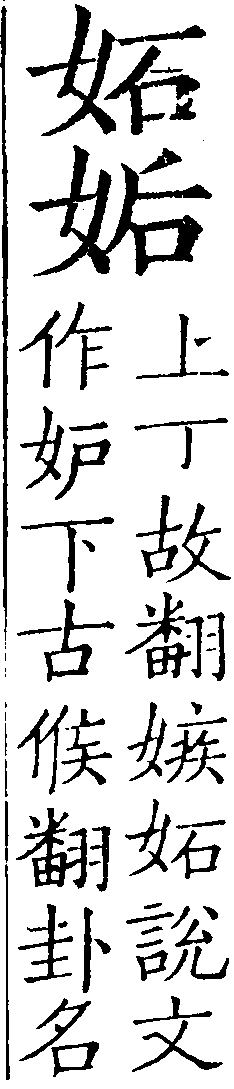 妬姤
上丁故翻嫉妬説文
作妒下古候翻卦名